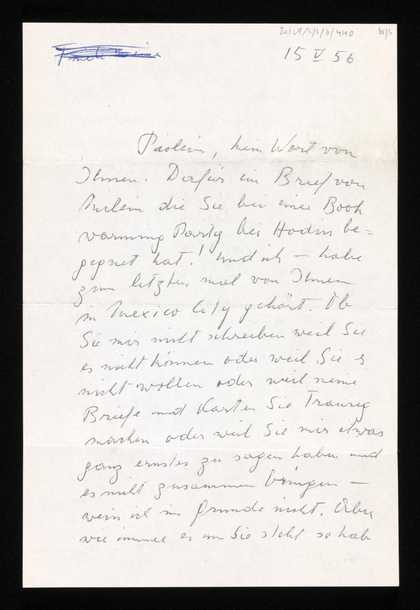 15 V 56
Paolein, kein Wort von
Ihnen. Dafür ein Brief von
die Sie bei einer Book
warming Party bei Hodin be=
gegnet hat! Und ich – habe
zum letzten mal von Ihnen
in Mexico City gehört. Ob
Sie mir nicht schreiben weil Sie
es nicht können oder weil Sie es
nicht wollen oder weil meine
Briefe und Karten Sie traurig
machen oder weil Sie mir etwas
ganz ernstes zu sagen haben und
es nicht zusammen bringen –
weiss ich im Grunde nicht. Aber
wie immer es um Sie steht so hab